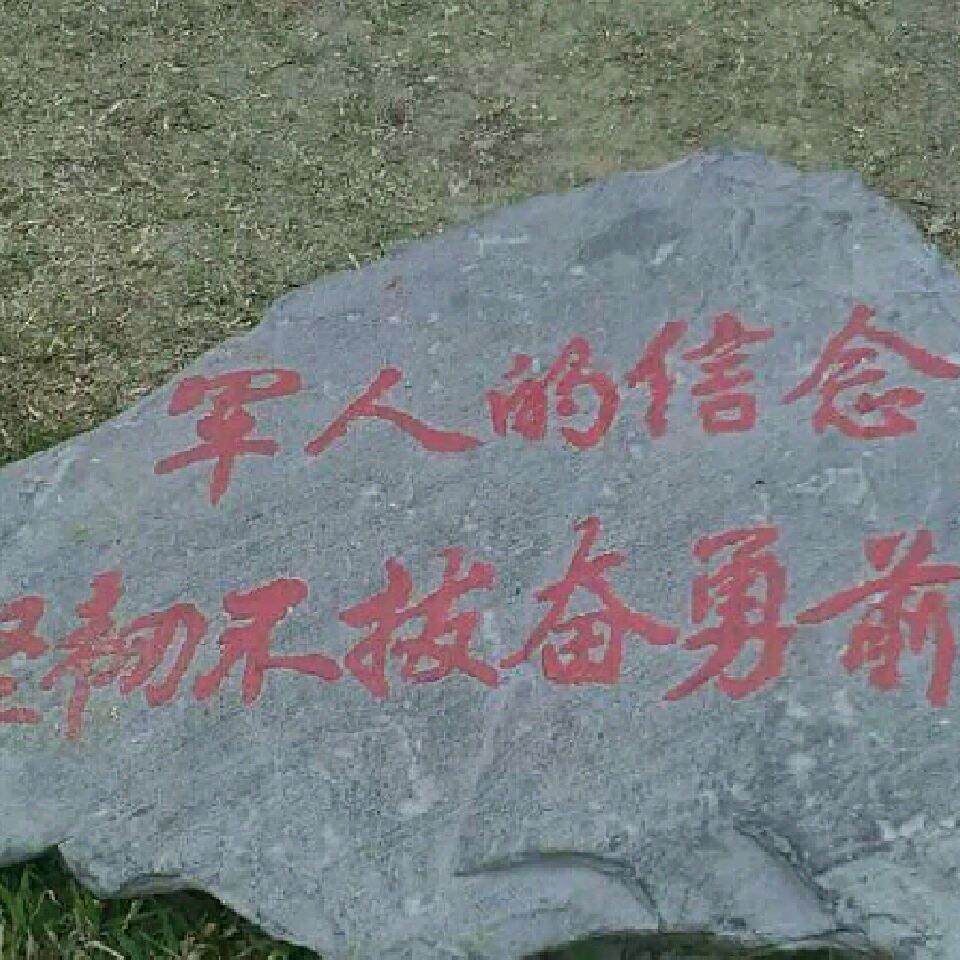 军人的信念
坚韧不拔奋勇前